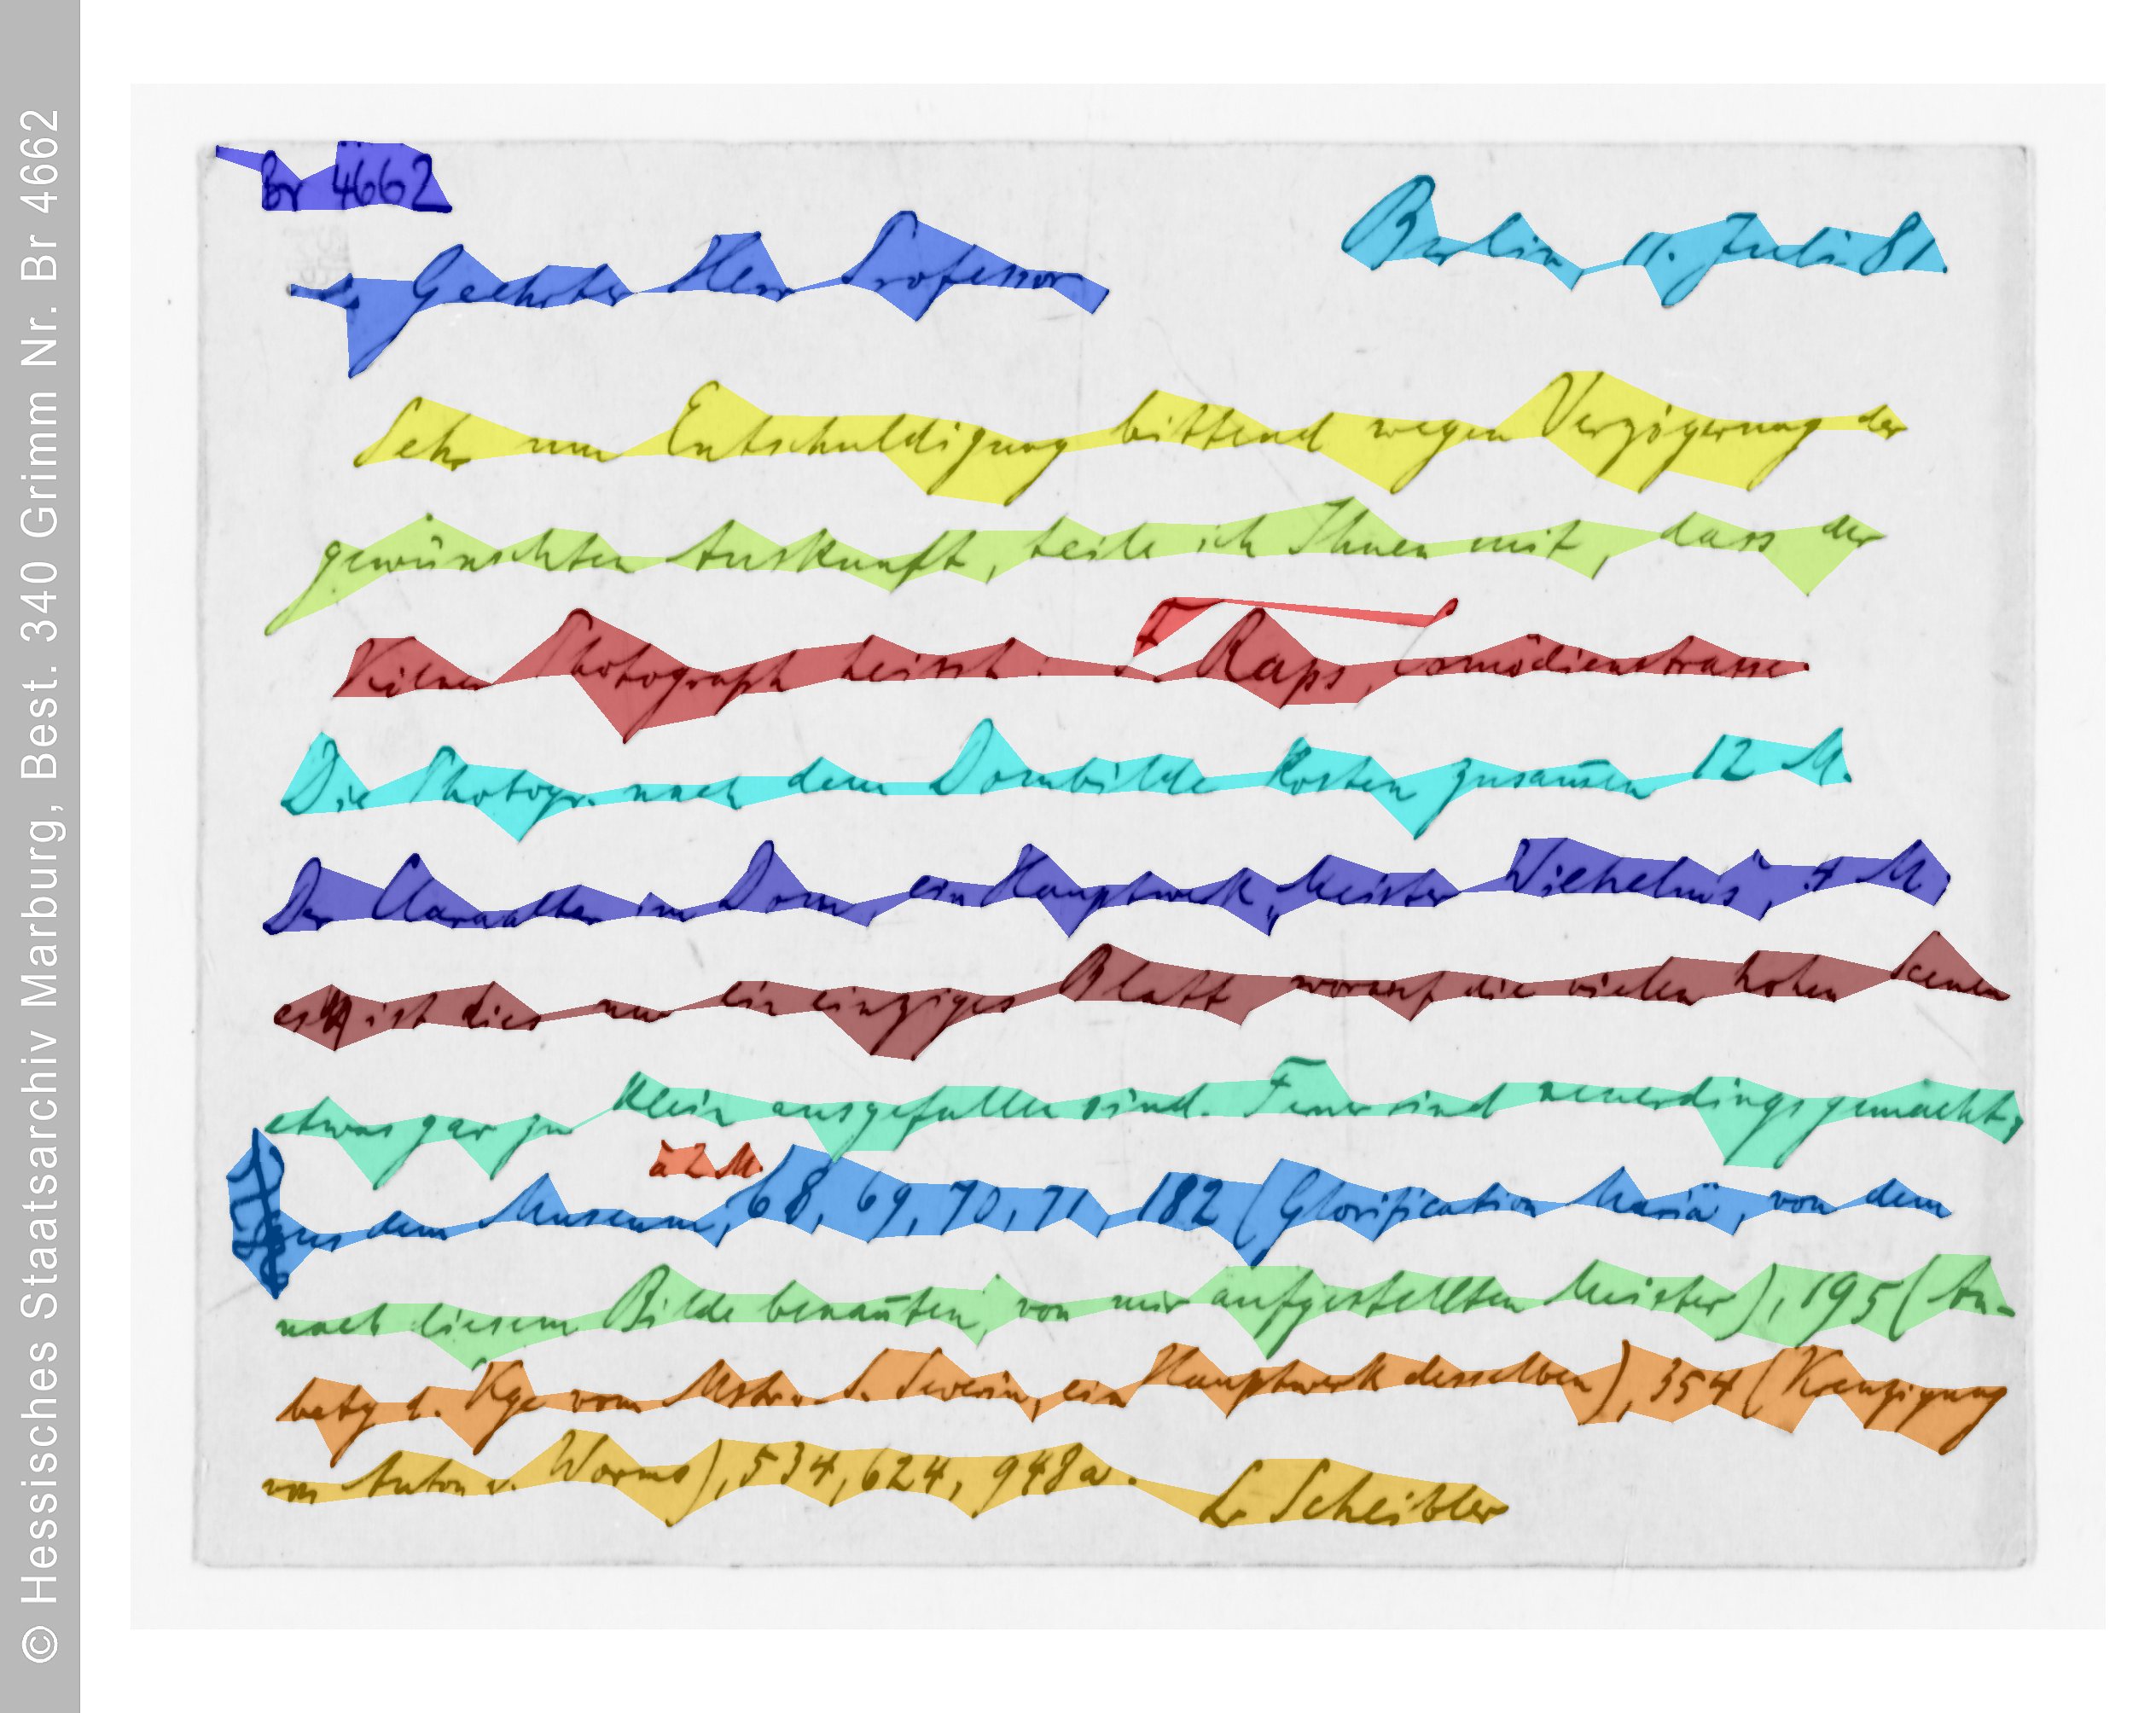 © Hessisches Staatsarchiv Marburg, Best. 340 Grimm Nr. Br 4662
Br 4662
Berlin, 11. Juli 81.
Geehrter Herr Professor
Sehr um Entschuldigung bittend wegen Verzögerung der
gewünschten Auskunft, teile ich Ihnen mit, dass der
Kölner Photograph heisst: Raps, Comödienstrasse.
Die Photogr. nach dem Dombilde kosten zusam̅en 12 M.
Der Claraaltar im Dom, ein Hauptwerk „Meister Wilhelms“, 4 M,
es ist dies nur ein einziges Blatt worauf die vielen hohen Scenen
etwas gar zu klein ausgefallen sind. Ferner sind neuerdings gemacht,
à 2 M.
aus dem Museum, 68, 69, 70, 71, 182 (Glorification Mariä, von dem
nach diesem Bilde benan̅ten, von mir aufgestellten Meister), 195 (An-
betg d. Kge vom Mstr v. S. Severin, ein Hauptwerk desselben), 354 (Kreuzigung
von Anton v. Worms), 534, 624, 948a.
L. Scheibler